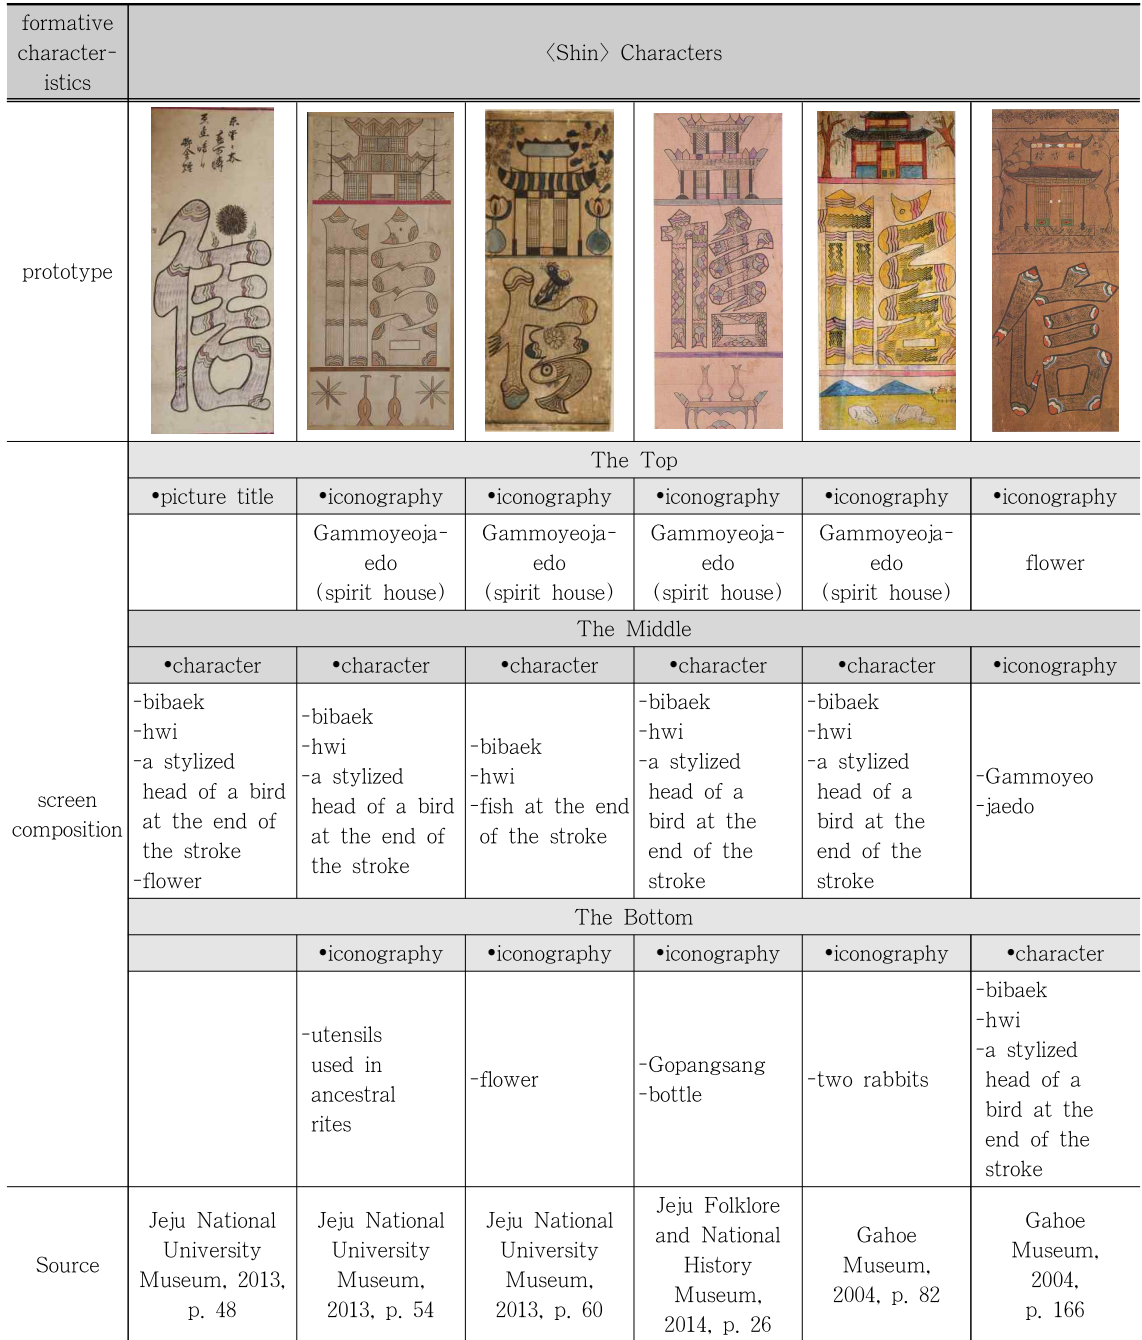 formative
character-
istics
〈Shin〉 Characters
prototype
信
信
信
信
信
信
screen
composition
The Top
•picture title
•iconography
•iconography
•iconography
•iconography
•iconography
Gammoyeoja-
edo
(spirit house)
Gammoyeoja-
edo
(spirit house)
Gammoyeoja-
edo
(spirit house)
Gammoyeoja-
edo
(spirit house)
flower
The Middle
•character
•character
•character
•character
•character
•iconography
-bibaek
-hwi
-a stylized
head of a bird
at the end of
the stroke
-flower
-bibaek
-hwi
-a stylized
head of a bird
at the end of
the stroke
-bibaek
-hwi
-fish at the end
of the stroke
-bibaek
-hwi
-a stylized
head of a
bird at the
end of the
stroke
-bibaek
-hwi
-a stylized
head of a
bird at the
end of the
stroke
-Gammoyeo
-jaedo
The Bottom
•iconography
•iconography
•iconography
•iconography
•character
-utensils
used in
ancestral
rites
-flower
-Gopangsang
-bottle
-two rabbits
-bibaek
-hwi
-a stylized
head of a
bird at the
end of the
stroke
Source
Jeju National
University
Museum, 2013,
p. 48
Jeju National
University
Museum,
2013, p. 54
Jeju National
University
Museum,
2013, p. 60
Jeju Folklore
and National
History
Museum,
2014, p. 26
Gahoe
Museum,
2004, p. 82
Gahoe
Museum,
2004,
p. 166